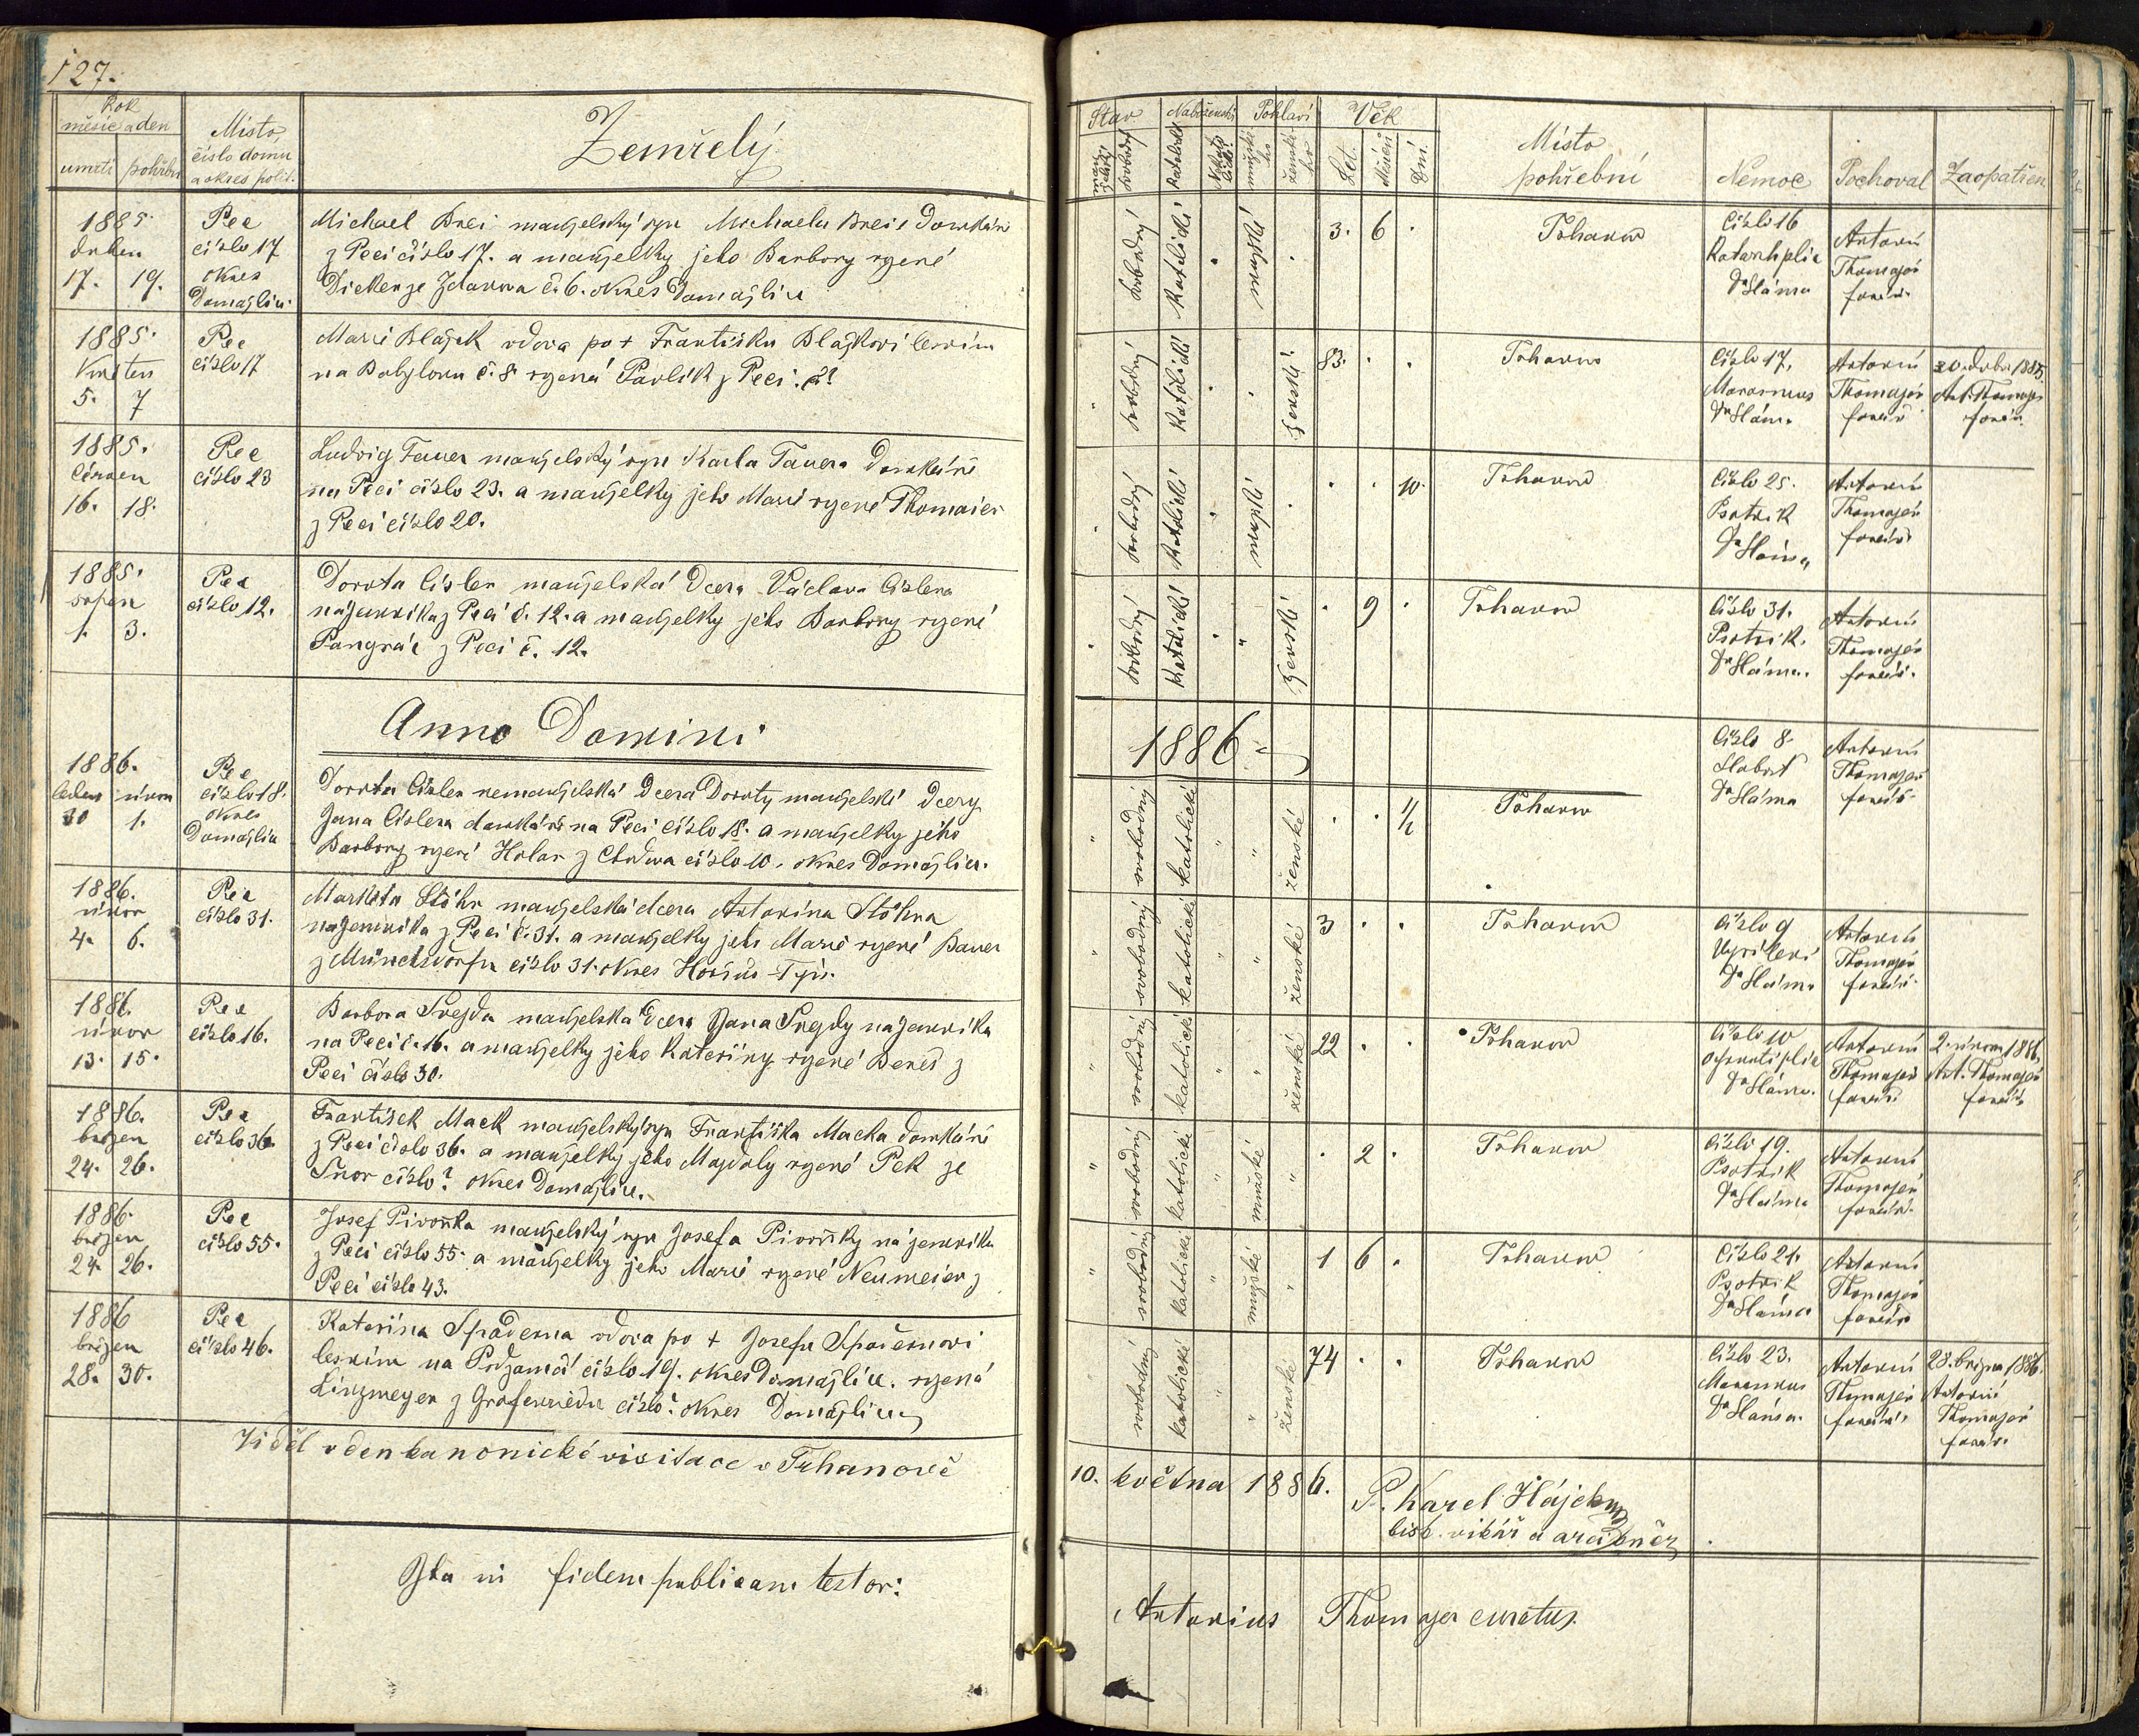 127.
Rok
měsíc a den
umrtí pohřbu
Místo,
číslo domu
a okres polit.
Zemřelý
1885
duben
17. 19.
Pec
číslo 17
okres
Domažlice
Michael Brei manželský syn Michaela Brei, domkáře
z Peci číslo 17. a manželky jeho Barbory rozené
č. 6. okres Domažlice
1885.
Květen
5. 7
Pec
číslo 17
Marie Blažek vdova po + Františku Blažkovi
na Babylonu č. 8. rozená Pavlík z Peci. č?
1885.
Červen
16. 18.
Pec
číslo 23
Ludvig Tauer manželský syn Karla Tauera domkáře
na Peci číslo 23. a manželky jeho Marie rozené Thomaier
z Peci číslo 20.
1885.
srpen
1. 3.
Pec
číslo 12.
Dorota Cisler manželská dcera Václava Cislera
nájemníka z Peci č. 12. a manželky jeho Barbory rozené
Pangrác z Peci č. 12.
Anno Domini
1886.
leden únor
30 1.
Pec
číslo 18.
okres
Domažlice
Dorota Cisler nemanželská dcera Doroty manželské dcery
Jana Cislera domkáře na Peci číslo 18. a manželky jeho
Barbory rozené číslo 10. okres Domažlice.
1886.
únor
4. 6.
Pec
číslo 31.
Markéta Stöhr manželská dcera Antonína Stöhra
nájemníka z Peci č. 31. a manželky jeho Marie rozené Bauer
z Münchsdorfu číslo 31. okres Horšův-Týn.
1886.
únor
13. 15.
Pec
číslo 16.
Barbora Srejda manželská dcera Jana Srejdy nájemníka
na Peci č. 16. a manželky jeho Kateřiny rozené Beneš z
Peci číslo 30.
1886.
březen
24. 26.
Pec
číslo 36.
František Mack manželský syn Františka Macka domkáře
z Peci číslo 36. a manželky jeho Majdaly rozené Pek ze
číslo? okres Domažlice.
1886.
březen
24. 26.
Pec
číslo 55.
Josef Pivoňka manželský syn Josefa Pivoňky nájemníka
z Peci číslo 55. a manželky jeho Marie rozené Neumeier z
Peci číslo 43.
1886
březen
28. 30.
Pec
číslo 46.
Kateřina vdova po + Josefu
na Podzámčí číslo 19. okres Domažlice. rozená
Linzmeyer z Grafenriedu číslo? okres Domažlice
Viděl v den kanonické visitace v Trhanově
Ita in fidem publicam testor:
Stav Náboženství Pohlaví Věk
svobodný katolické mužské ženské
Let. Měsíců Dní
Místo
pohřební
Nemoc Pochoval Zaopatřen
svobodný katolické mužské
3. 6 .
Trhanov
číslo 16
Dr Sláma
Antonín
Thomajer
farář.
svobodný katolické ženské
83. . .
Trhanov
číslo 17.
Marasmus
Dr Sláma
Antonín
Thomajer
farář
20. dubna 1885.
Ant. Thomajer
farář.
svobodný katolické mužské
. . 10.
Trhanov
číslo 25.
Psotník
Dr Sláma
Antonín
Thomajer
farář
svobodný katolické ženské
. 9 .
Trhanov
číslo 31.
Psotník.
Dr Sláma.
Antonín
Thomajer
farář.
1886
svobodný katolické ženské
. . 1/2
Trhanov
číslo 8.
Slabost
Dr Sláma
Antonín
Thomajer
farář
svobodný katolické ženské
3 . .
Trhanov
číslo 9
Dr Sláma
Antonín
Thomajer
farář.
svobodný katolické ženské
22 . .
Trhanov
číslo 10
Dr Sláma.
Antonín
Thomajer
farář
2. února 1886.
Ant. Thomajer
farář
svobodný katolické mužské
. 2 .
Trhanov
číslo 19.
Psotník
Dr Sláma
Antonín
Thomajer
farář.
svobodný katolické mužské
1 6 .
Trhanov
číslo 21.
Psotník
Dr Sláma
Antonín
Thomajer
farář
svobodný katolické ženské
74 . .
Trhanov
číslo 23.
Marasmus
Dr Sláma.
Antonín
Thomajer
farář
28. března 1886.
Antonín
Thomajer
farář.
10. května 1886.
P. Karel Hájek
bisk. vikář a arciděkan
Antonius Thomajer curatus.